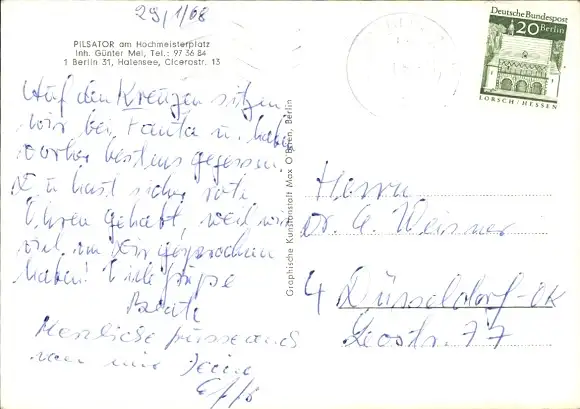 29/1/68
PILSATOR am Hochmeisterplatz
Inh. Günter Mei, Tel.: 97 36 84
1 Berlin 31, Halensee, Cicerostr. 13
Auf den Kreuzen sitzen
wir bei Fanta u. haben
vorher bestens gegessen.
Du hast sicher rote
Ohren gehabt, weil wir
viel von Dir gesprochen
haben! Viele Grüße
Beate
Herzliche Grüsse auch
von mir Deine
Graphische Kunstanstalt Max O'Brien, Berlin
Deutsche Bundespost
20 Berlin
LORSCH/HESSEN
Herrn
Dr. G. Weisner
4 Düsseldorf-OK
Leostr. 77